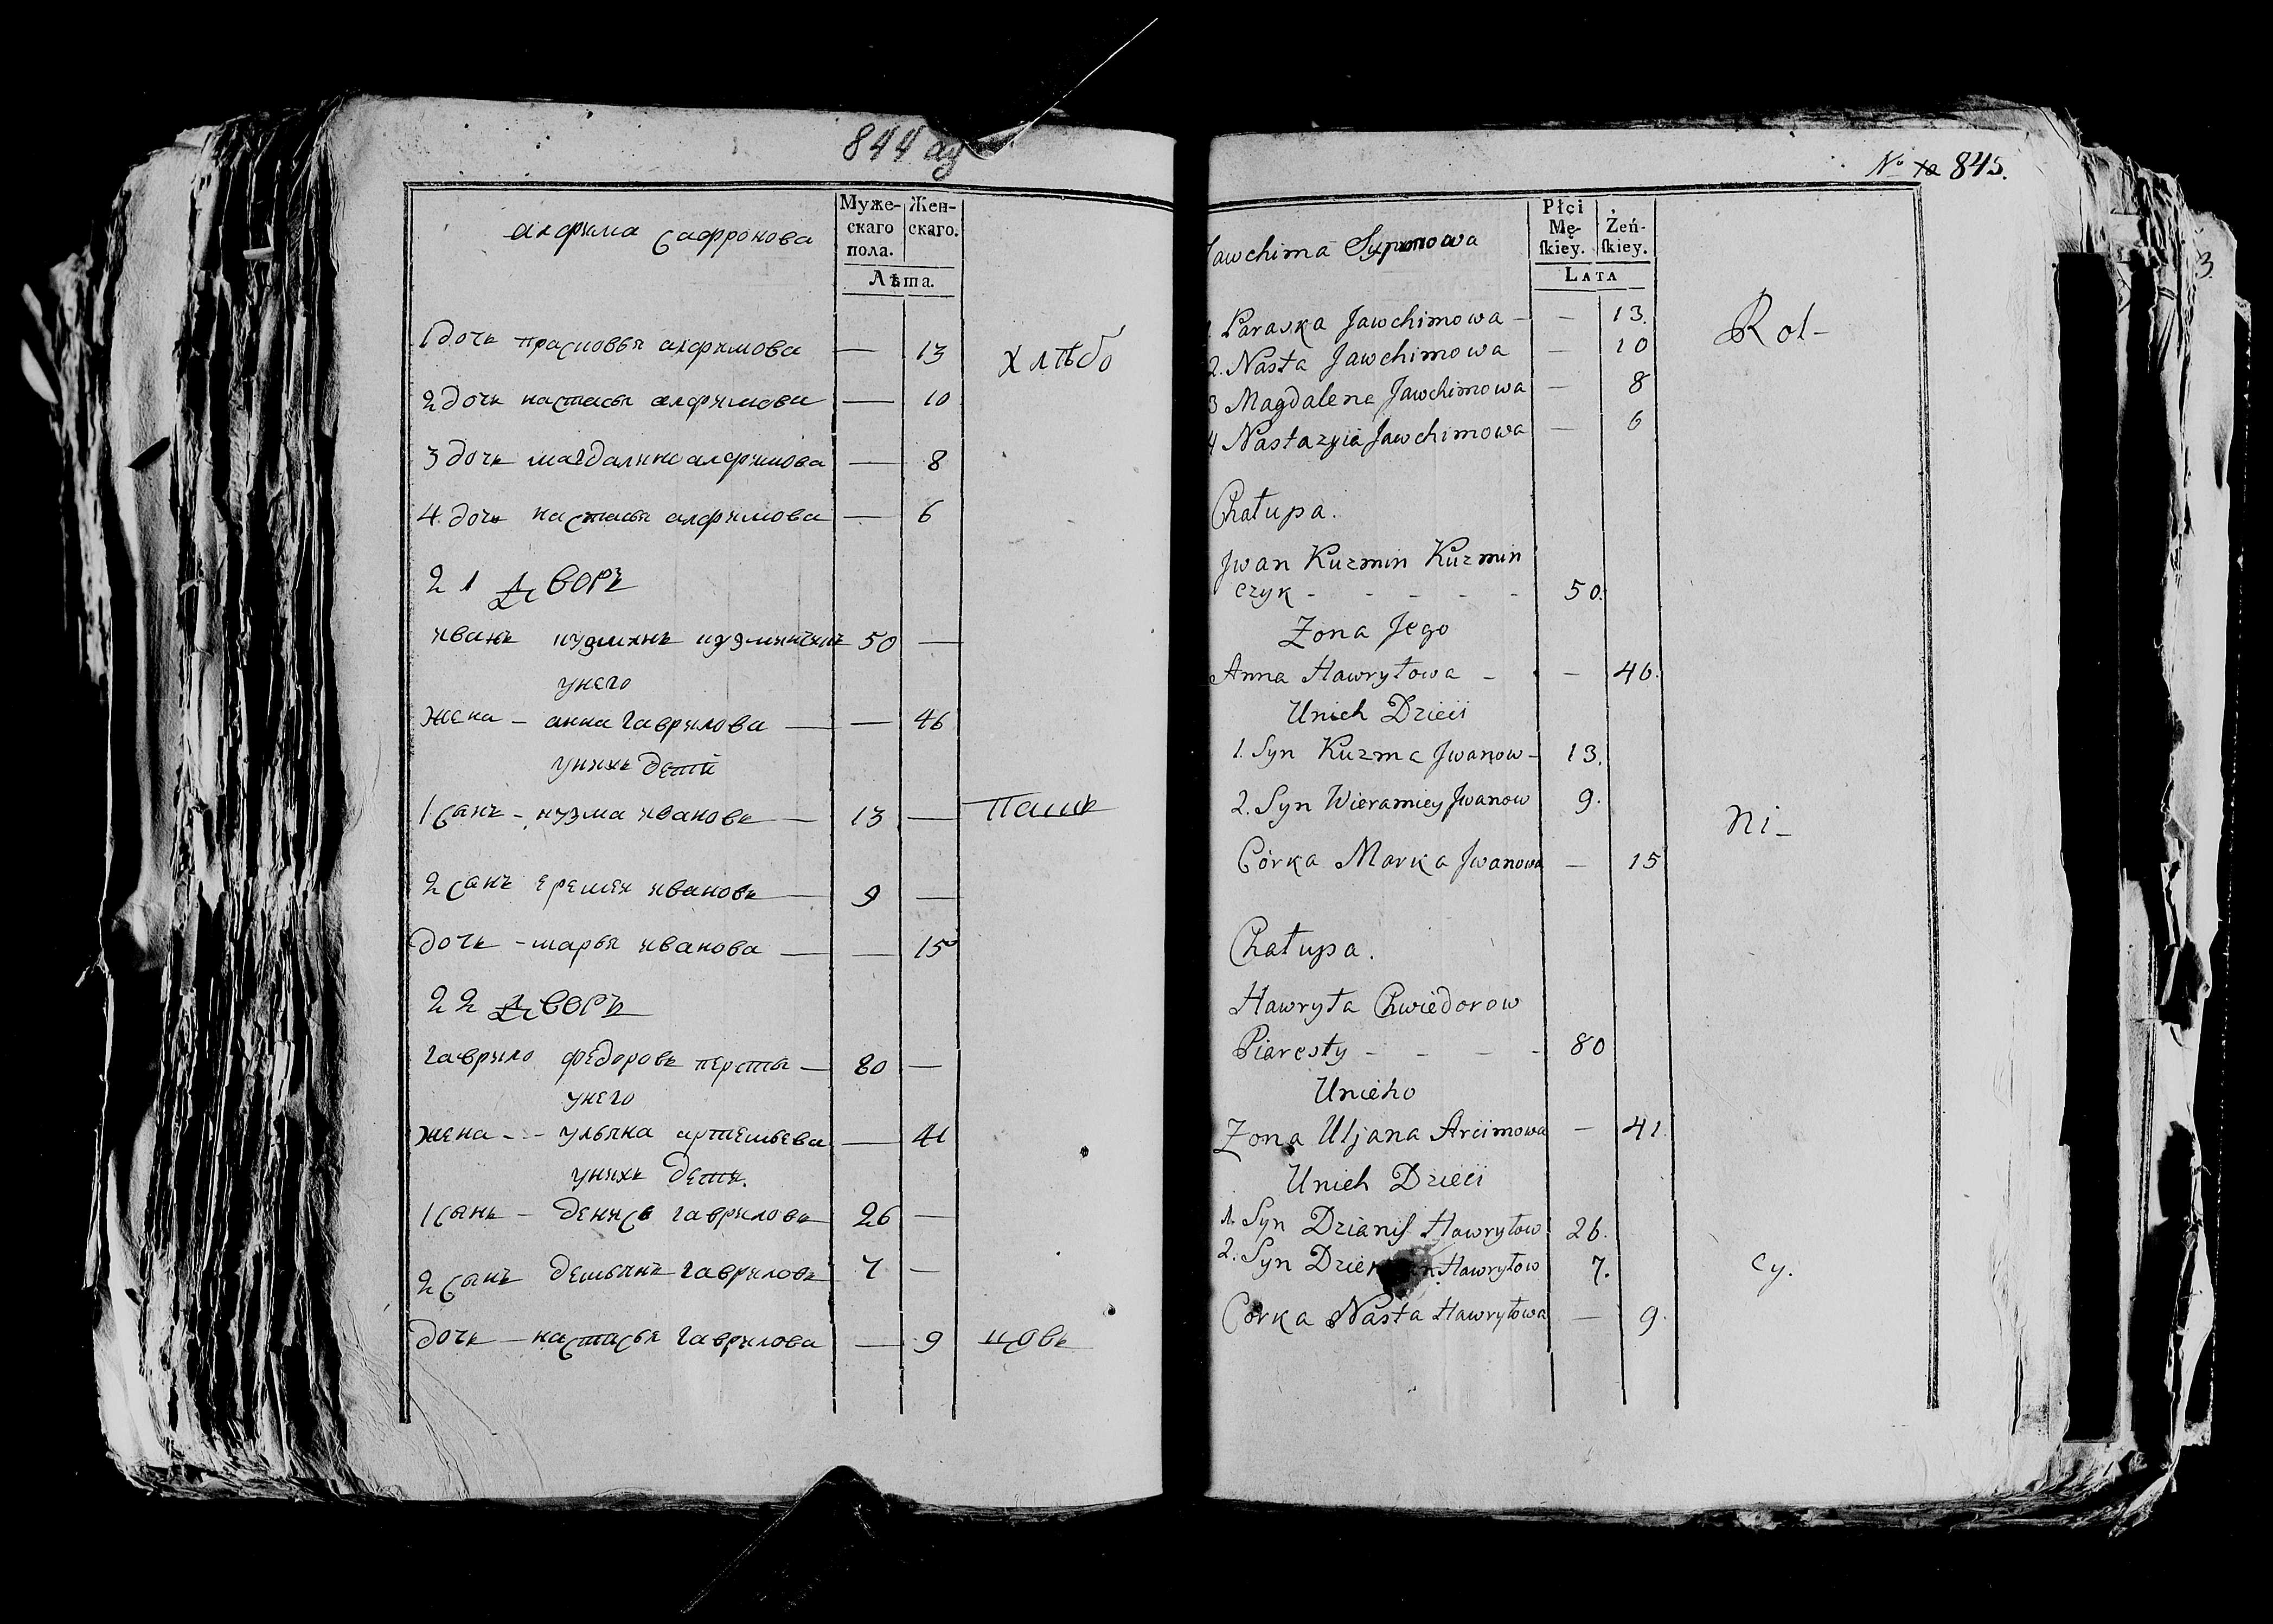 844
Муже-
скаго
пола.
Жен-
скаго.
Лѣта.
алфима сафронова
1 дочь прасковья алфимова — 13
хлѣбо
2 дочь настасья алфимова — 10
3 дочь магдалина алфимова — 8
4 дочь настасья алфимова — 6
21 Дворъ
иванъ кузминъ кузминчикъ 50 —
унего
жена — анна гаврилова — — 46
унихъ дети
1 сынъ — кузма ивановъ — 13 —
паш
2 сынъ еремеи ивановъ — 9 —
дочь — марья иванова — — 15
22 Дворъ
гаврило федоровъ персты — 80 —
унего
жена - - ульяна артемьева — 41
унихъ дети.
1 сынъ — денисъ гавриловъ 26 —
2 сынъ демьянъ гавриловъ 7 —
дочь — настасья гаврилова — 9
цовъ
No 845.
Płci
Mę-
ſkiey.
Żeń-
ſkiey.
LATA
Jawchima
1 Paraska Jawchimowa — — 13.
Rol-
2. Nasta Jawchimowa — 10
3 Magdalena Jawchimowa — 8
4 Nastazyia Jawchimowa — 6
Chałupa.
Jwan Kuzmin Kuzmin
czyk - - - - - 50.
Zona Jego
Anna Hawryłowa - - — 46.
Unich Dzieci
1. Syn Kuzma Jwanow - 13.
2. Syn Wieramiey Jwanow 9.
Ni-
Córka Marka Jwanowa — 15
Chałupa.
Hawryła Chwiedorow
Piaresty - - - - 80
Unieho
Zona Uljana Arcimowa — 41.
Unich Dzieci
1. Syn Dzianiſ Hawryłow 26.
2. Syn Hawryłow 7.
cy.
Córka Nasta Hawryłowa — 9.
3.